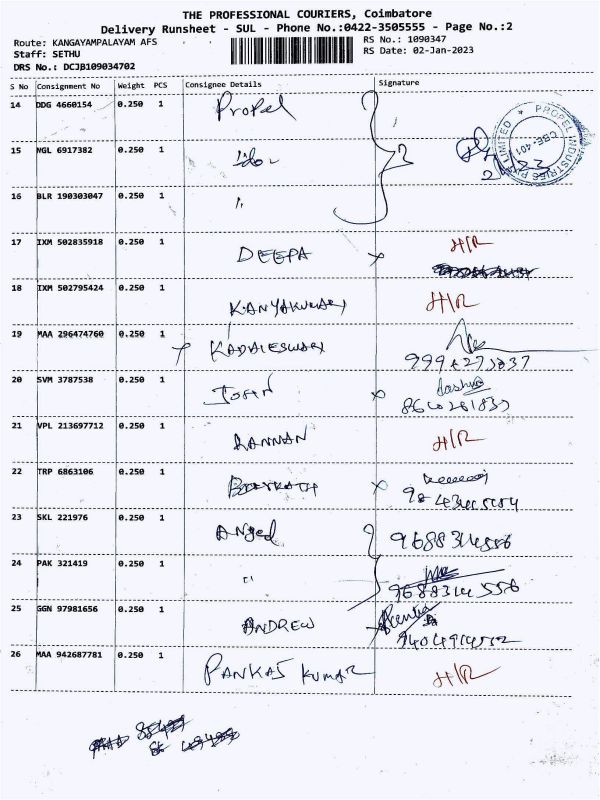 THE PROFESSIONAL COURIERS, Coimbatore
Delivery Runsheet - SUL - Phone No.:0422-3505555 - Page No.:2
Route: KANGAYAMPALAYAM AFS
RS No.: 1090347
Staff: SETHU
RS Date: 02-Jan-2023
DRS No.: DCJB109034702
S No Consignment No Weight PCS Consignee Details Signature
14 DDG 4660154 0.250 1 Propel
PROPEL INDUSTRIES PVT LIMITED * CBE-401
15 NGL 6917382 0.250 1
16 BLR 190303047 0.250 1 "
17 IXM 502835918 0.250 1 DEEPA x H/R
18 IXM 502795424 0.250 1 KANYAKUMARY H/R
19 MAA 296474760 0.250 1 x KADALESWARY
20 SVM 3787538 0.250 1 JOHN x
21 VPL 213697712 0.250 1 KANNAN H/R
22 TRP 6863106 0.250 1 x
23 SKL 221976 0.250 1 Angel 9688314556
24 PAK 321419 0.250 1 " 9688314556
25 GGN 97981656 0.250 1 ANDREW x
26 MAA 942687781 0.250 1 PANKAJ KUMAR H/R